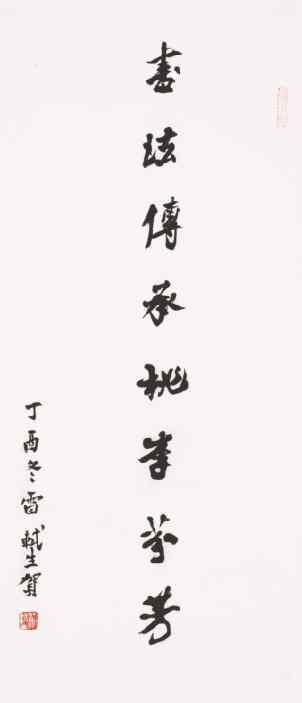 書法傳承桃李芬芳
丁酉冬雷軾生賀